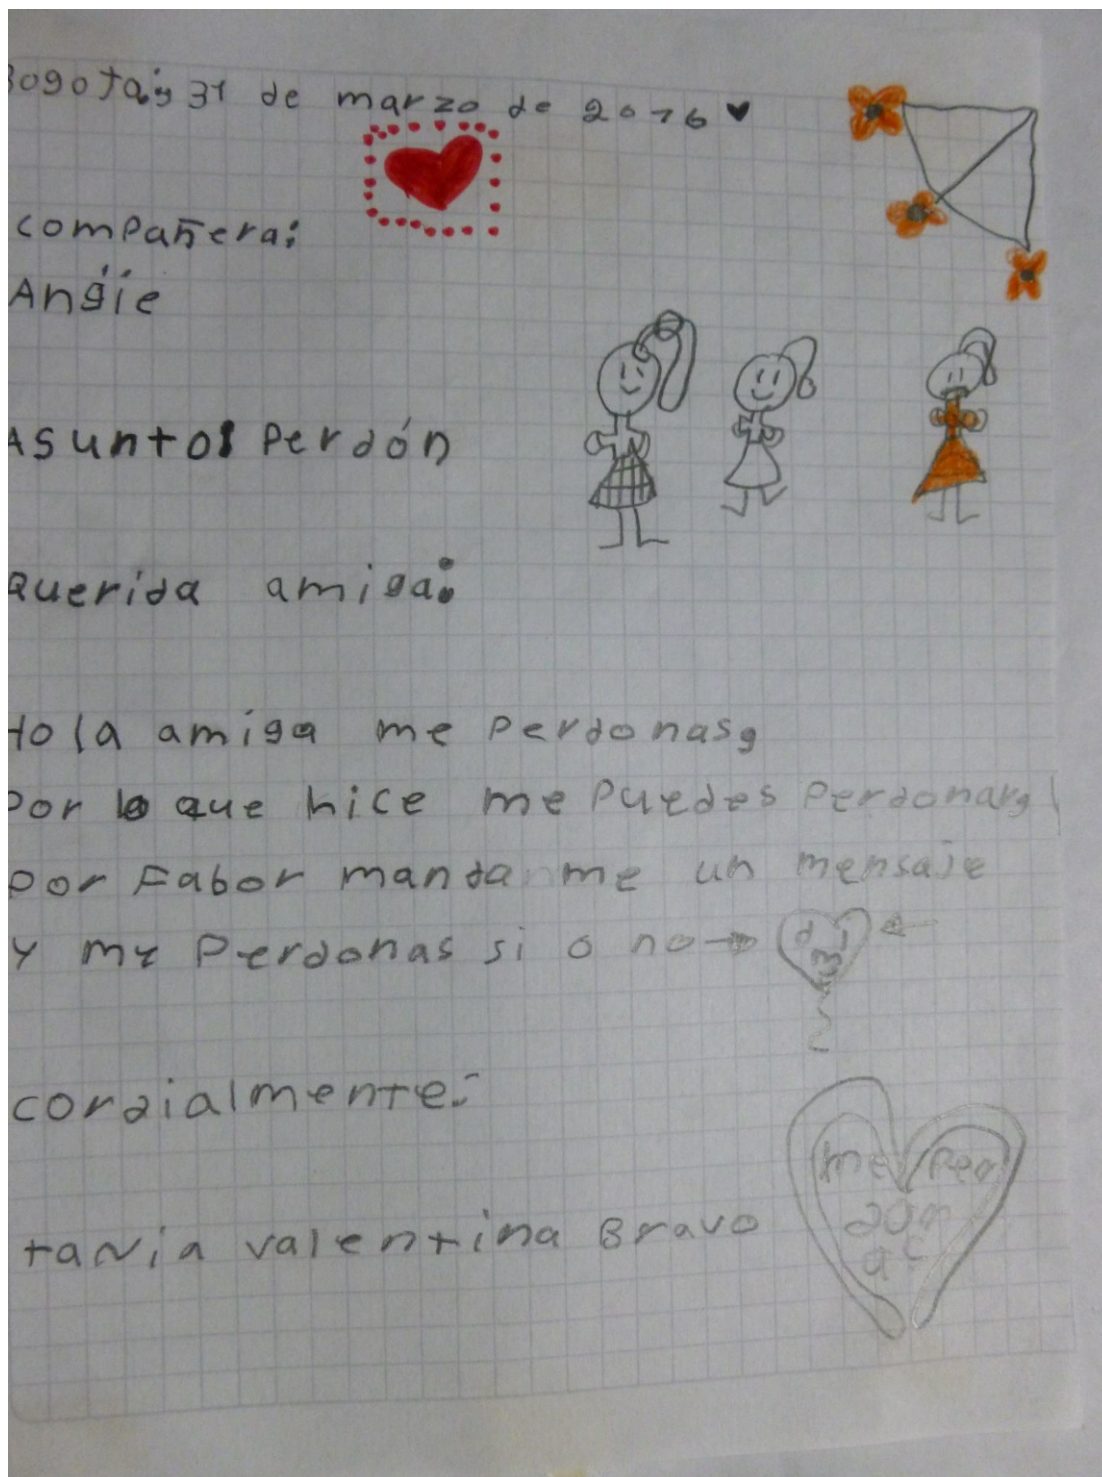 Bogotá, 31 de marzo de 2016
compañera:
Angie
Asunto: Perdón
Querida amiga:
Hola amiga me Perdonas,
Por lo que hice me Puedes Perdonar,
Por Fabor mandanme un mensaje
Y me Perdonas si o no
cordialmente:
tania valentina Bravo
me Per
don
as